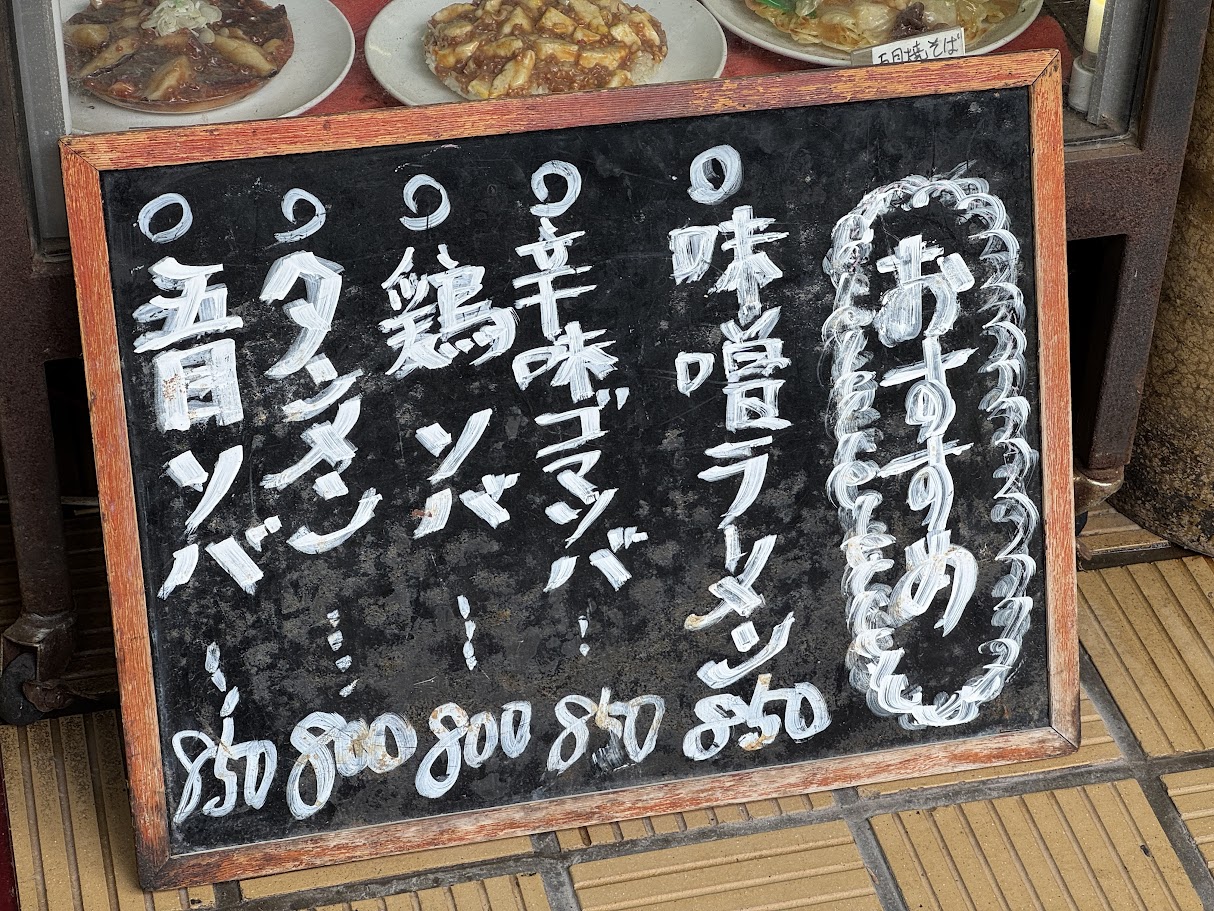 五目焼そば
おすすめ
味噌ラーメン 850
辛味ゴマソバ … 850
鶏ソバ … 800
タンメン … 800
五目ソバ … 850